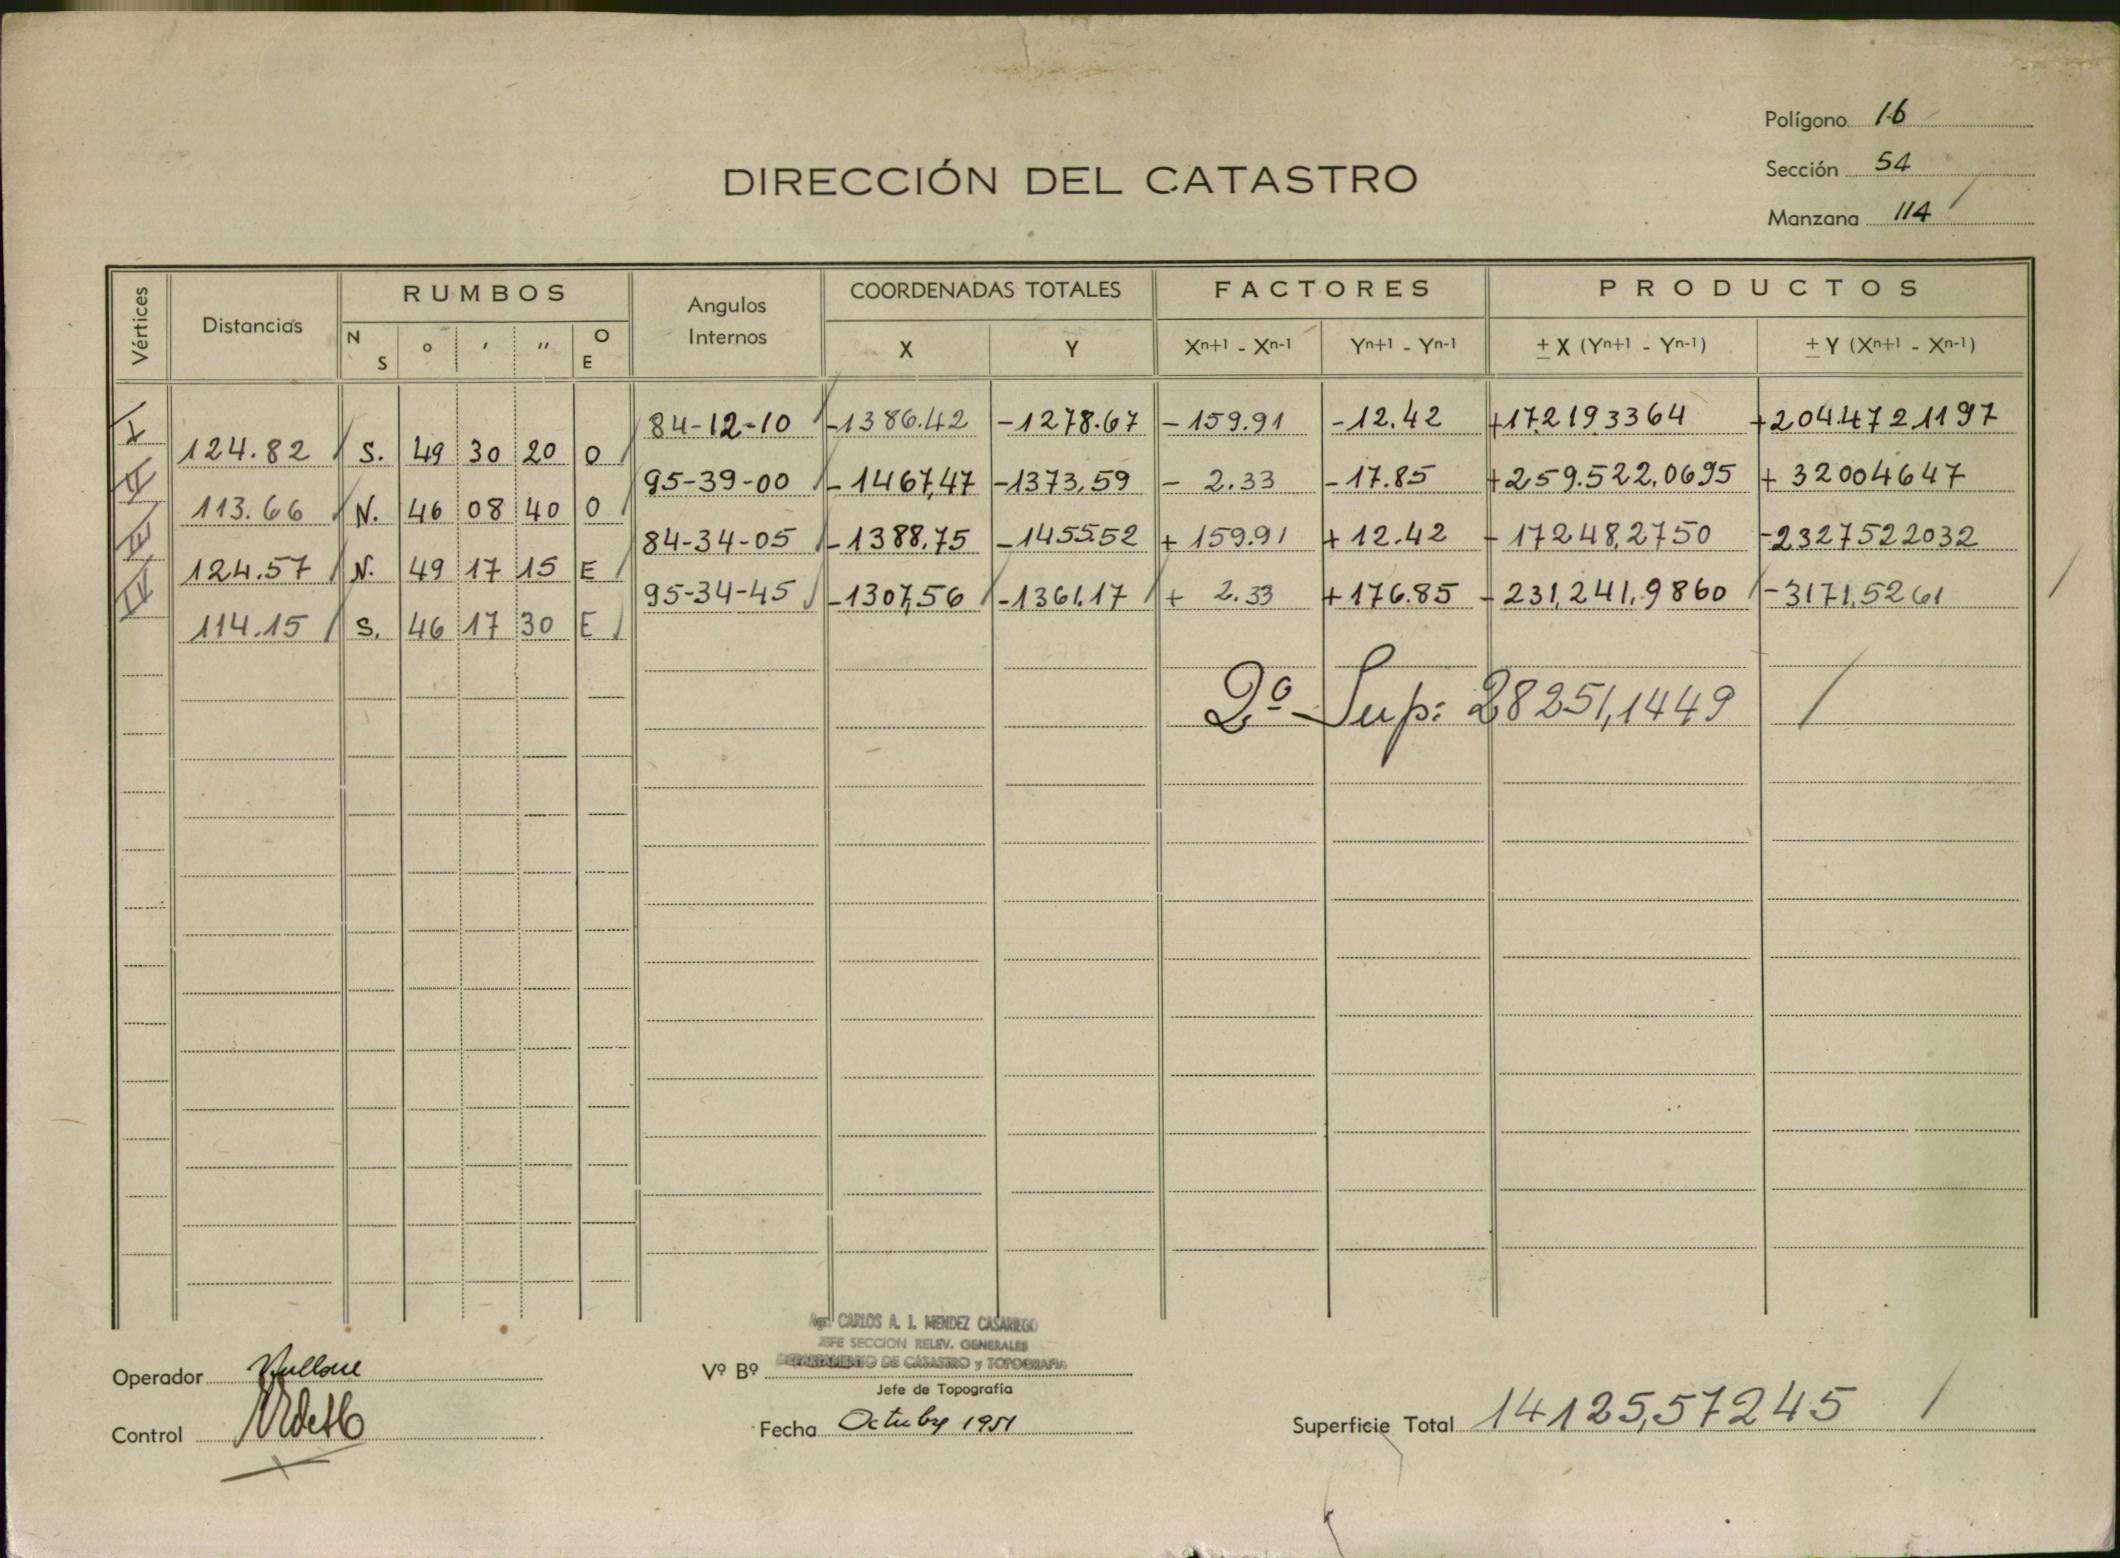 Polígono 16
Sección 54
Manzana 114
DIRECCIÓN DEL CATASTRO
Vértices Distancias RUMBOS Angulos Internos COORDENADAS TOTALES FACTORES PRODUCTOS
N S ° ' " O E X Y Xn+1 - Xn-1 Yn+1 - Yn-1 ± X (Yn+1 - Yn-1) ± Y (Xn+1 - Xn-1)
I 84-12-10 -1386.42 -1278.67 -159.91 -12.42 +17219.3364 +204.472.1197
124.82 S. 49 30 20 O
II 95-39-00 -1467,47 -1373,59 - 2.33 -17.85 +259.522,0695 + 32004647
113.66 N. 46 08 40 O
III 84-34-05 -1388,75 -1455.52 + 159.91 + 12.42 - 17248,2750 -2327522032
124.57 N. 49 17 15 E
IV 95-34-45 -1307,56 -1361.17 + 2.33 +176.85 -231,241,9860 -3171,5261
114.15 S. 46 17 30 E
2º Sup: 28251,1449
Agr. CARLOS A. I. MENDEZ CASARIEGO
JEFE SECCION RELEV. GENERALES
DEPARTAMENTO DE CATASTRO y TOPOGRAFIA
Operador
Vº Bº
Jefe de Topografía
Control
Fecha Octubre 1951
Superficie Total 14125,57245